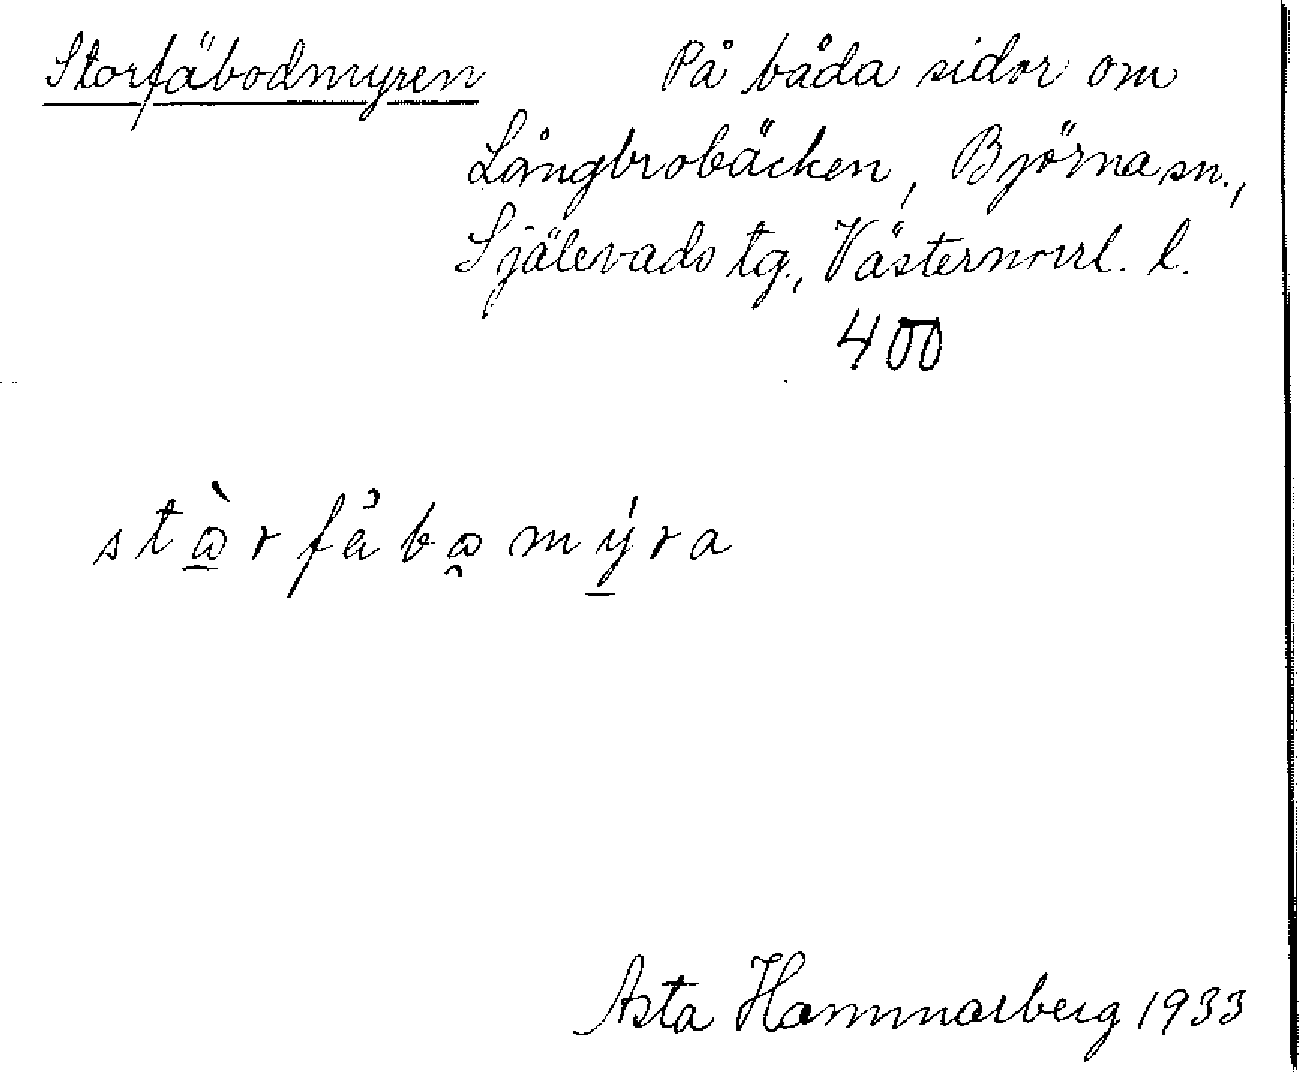 Storfäbodmyren På båda sidor om
Långbrobäcken, Björna sn.,
Själevads tg., Västernorrl. l.
400
stò̱rfäbo̯mý̱ra
Asta Hammarberg 1933